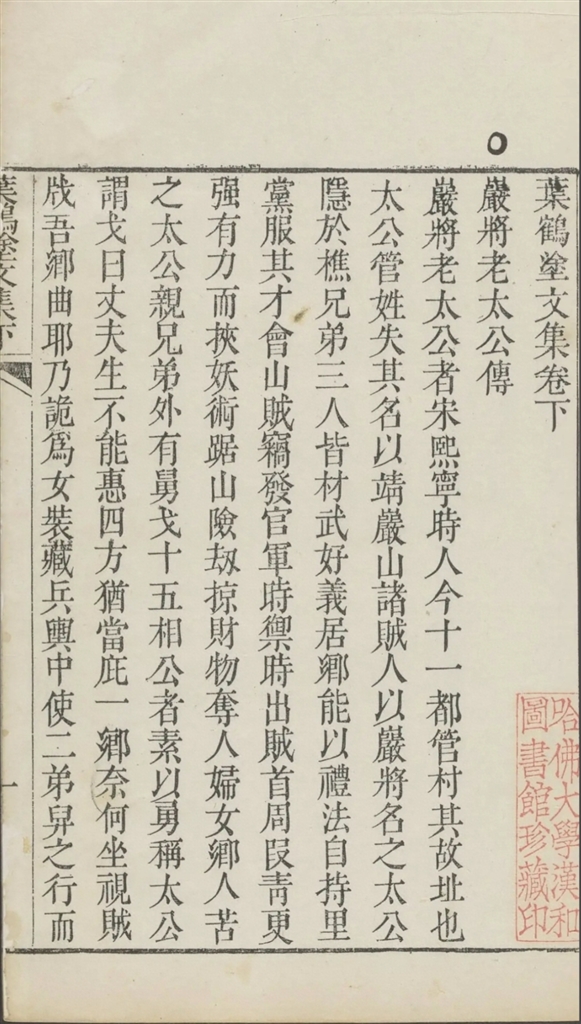 葉鶴塗文集卷下
嚴將老太公傳
嚴將老太公者宋熙寧時人今十一都管村其故址也
太公管姓失其名以靖嚴山諸賊人以嚴將名之太公
隱於樵兄弟三人皆材武好義居鄉能以禮法自持里
黨服其才會山賊竊發官軍時禦時出賊首周叚靑更
强有力而挾妖術踞山險刼掠財物奪人婦女鄉人苦
之太公親兄弟外有舅戈十五相公者素以勇稱太公
謂戈曰丈夫生不能惠四方猶當庇一鄉奈何坐視賊
戕吾鄉曲耶乃詭爲女裝藏兵輿中使二弟舁之行而
葉鶴塗文集下
一
哈佛大學漢和
圖書館珍藏印